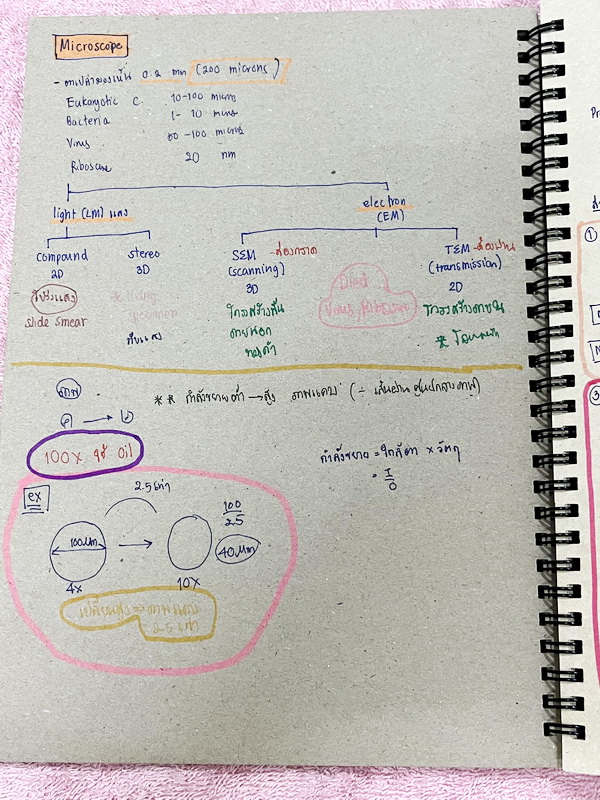 Microscope
- ตาเปล่ามองเห็น 0.2 mm (200 microns)
Eukaryotic C. 10-100 micns
Bacteria 1- 10 micns
Virus 80 -100 micns
Ribosome 20 nm
light (LM) แสง
electron (EM)
compound 2D
stereo 3D
SEM - ส่องกราด (scanning) 3D
TEM - ส่องผ่าน (transmission) 2D
โปร่งแสง
slide smear
* living specimen
ทึบแสง
โครงสร้างพื้น
ภายนอก
ทองคำ
Died
Virus, Ribosome
โครงสร้างภายใน
* โลหะหนัก
ภาพ
** กำลังขยายต่ำ → สูง ภาพแคบ (÷ เส้นผ่านศูนย์กลางภาพ)
100x ใช้ oil
กำลังขยาย = ใกล้ตา x วัตถุ
= I/O
ex
2.5 เท่า
100/2.5
100 µm
40 µm
4x
10x
เปลี่ยนสูง ⇒ ภาพแคบ
2.5 เท่า
1
3